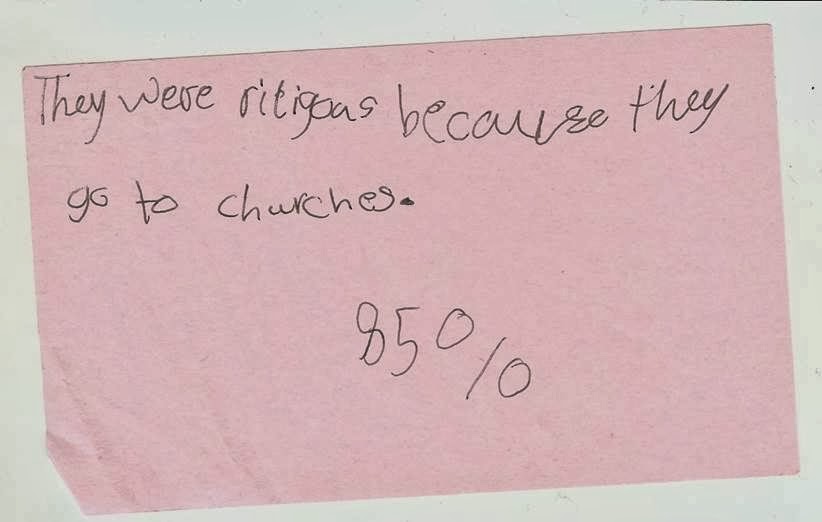 They were riligous because they
go to churches.
85%